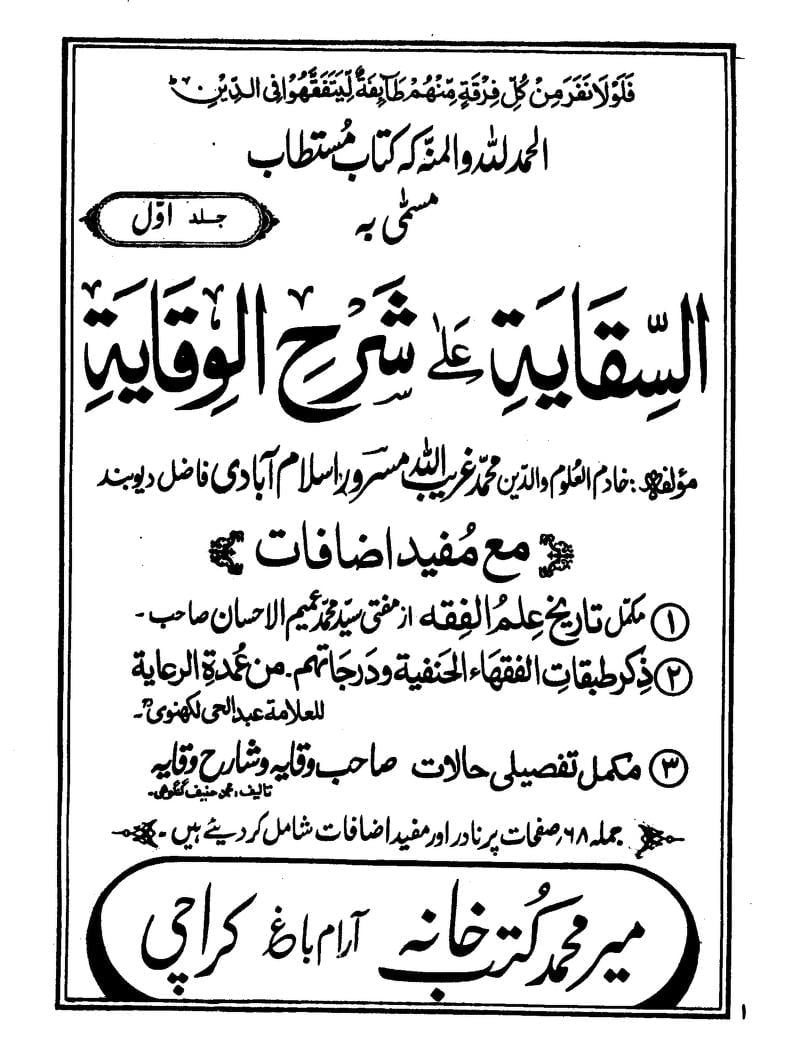 فَلَوْلَا نَفَرَ مِنْ كُلِّ فِرْقَةٍ مِّنْهُمْ طَآئِفَةٌ لِّيَتَفَقَّهُوْا فِي الدِّيْنِ
الحمد للہ والمنہ کہ کتاب مُستطاب
مسمّٰی بہ
جلد اوّل
السِّقَايَةِ عَلٰى شَرْحِ الْوِقَايَةِ
مؤلفہ : خادم العلوم والدین محمد غریب اللہ مسرور اسلام آبادی فاضل دیوبند
مع مُفید اضافات
① مکمل تاریخ عِلمُ الفِقه از مفتی سیّد محمد عمیم الاحسان صاحب ۔
② ذِکر طبقاتِ الفقهاء الحنفیة ودَرجاتهم ۔ من عُمدةِ الرعایة
للعلامة عبدالحی لکھنوی ؒ ۔
③ مکمل تفصیلی حالات صاحب وقایہ وشارح وقایہ
تالیف : محمد حنیف گنگوہی ۔
جملہ ۶۸ صفحات پر نادر اور مفید اضافات شامل کر دیئے ہیں ۔
میر محمد کُتب خانہ آرام باغ کراچی
۱